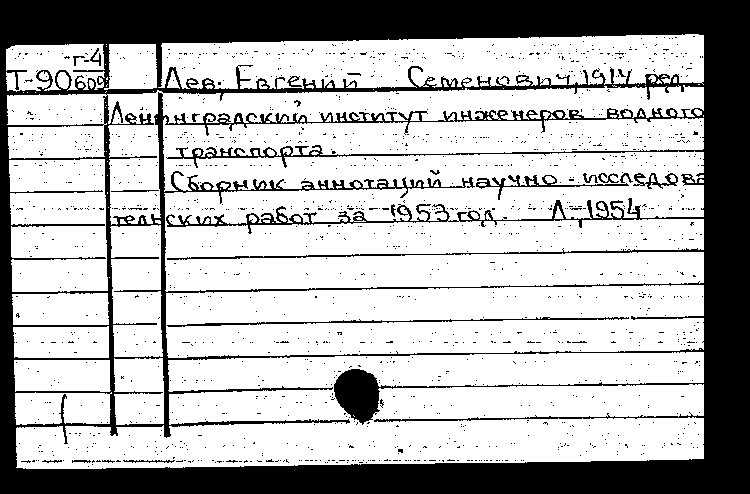 г-4
Т-90 609 Лев, Евгений Семенович, 1914 ред.
Ленинградский институт инженеров водного
транспорта.
Сборник аннотаций научно-исследова
тельских работ за 1953 год. Л., 1954